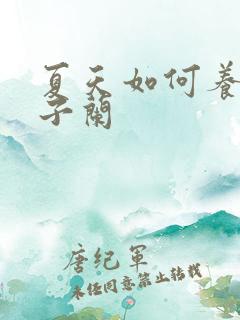 夏天如何养
子兰
唐纪军
未经同意禁止转载